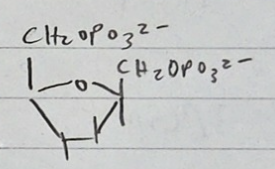 CH₂OPO₃²⁻
CH₂OPO₃²⁻
O